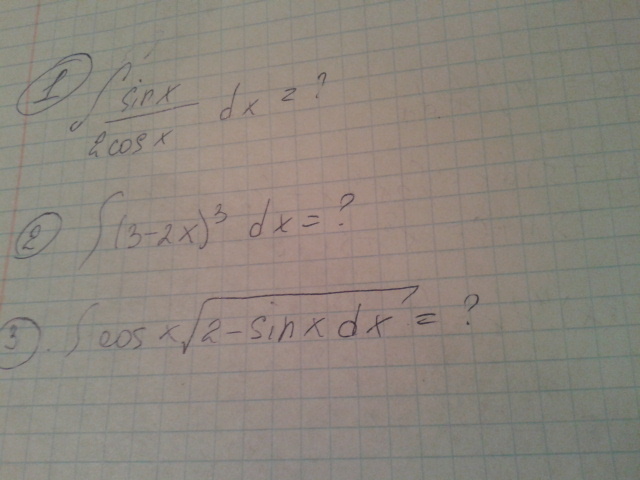 1 ∫ sinx / 2cosx dx = ?
2 ∫ (3-2x)³ dx = ?
3. ∫ cos x √(2-sinx dx) = ?